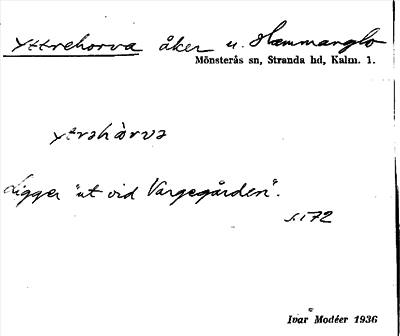 Yttrehorva åker u. Hammanglo
Mönsterås sn, Stranda hd, Kalm. l.
ytrəhòrva
Ligger "ut vid Vargegården".
s. 172
Ivar Modéer 1936